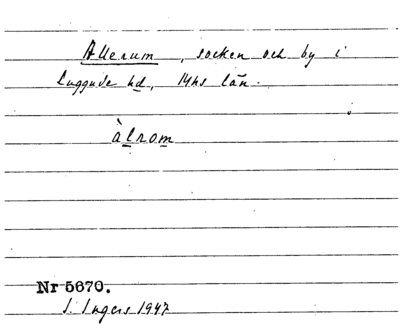 Allerum, socken och by i
Luggude hd, Mhs län.
àlrom
Nr 5670.
I. Ingers 1947